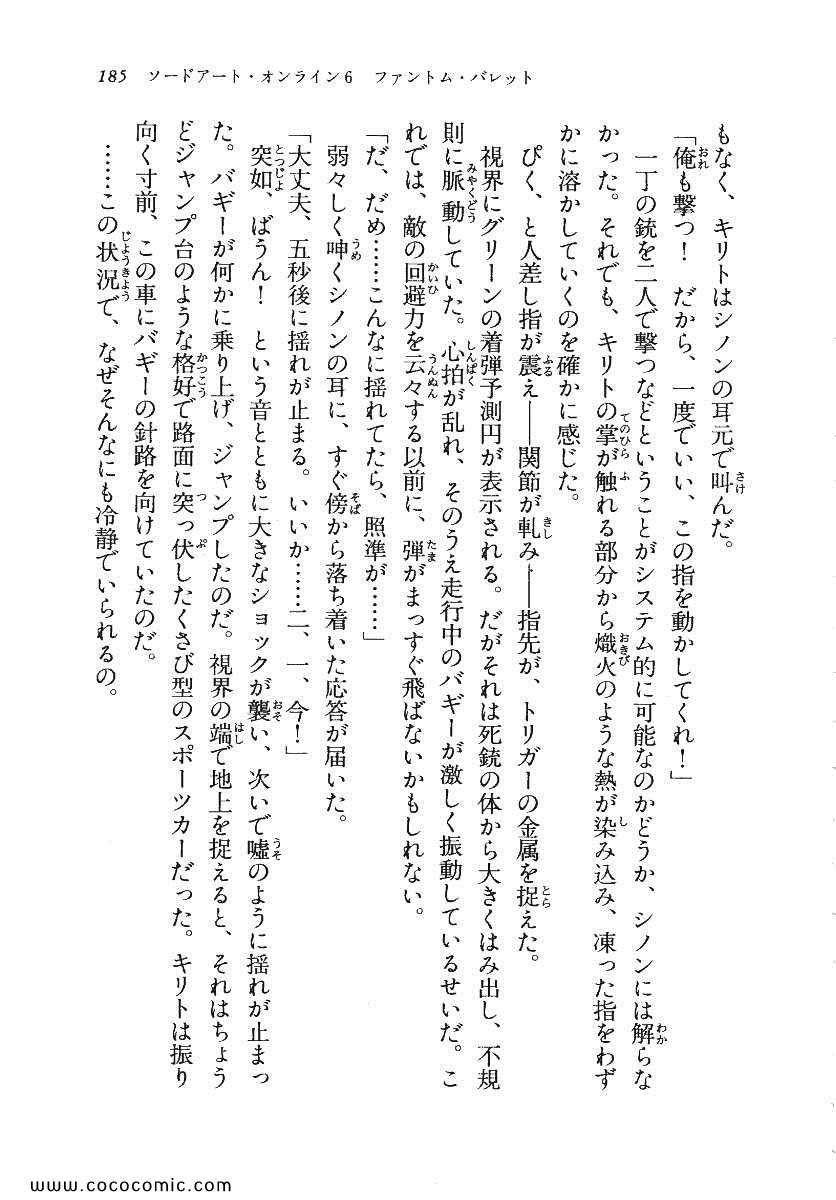 185　ソードアート・オンライン6　ファントム・バレット
もなく、キリトはシノンの耳元で叫んだ。
「俺も撃つ！　だから、一度でいい、この指を動かしてくれ！」
　一丁の銃を二人で撃つなどということがシステム的に可能なのかどうか、シノンには解らな
かった。それでも、キリトの掌が触れる部分から熾火のような熱が染み込み、凍った指をわず
かに溶かしていくのを確かに感じた。
　ぴく、と人差し指が震え――関節が軋み――指先が、トリガーの金属を捉えた。
　視界にグリーンの着弾予測円が表示される。だがそれは死銃の体から大きくはみ出し、不規
則に脈動していた。心拍が乱れ、そのうえ走行中のバギーが激しく振動しているせいだ。こ
れでは、敵の回避力を云々する以前に、弾がまっすぐ飛ばないかもしれない。
「だ、だめ……こんなに揺れてたら、照準が……」
　弱々しく呻くシノンの耳に、すぐ傍から落ち着いた応答が届いた。
「大丈夫、五秒後に揺れが止まる。いいか……二、一、今！」
　突如、ばうん！　という音とともに大きなショックが襲い、次いで嘘のように揺れが止まっ
た。バギーが何かに乗り上げ、ジャンプしたのだ。視界の端で地上を捉えると、それはちょう
どジャンプ台のような格好で路面に突っ伏したくさび型のスポーツカーだった。キリトは振り
向く寸前、この車にバギーの針路を向けていたのだ。
　……この状況で、なぜそんなにも冷静でいられるの。
www.cococomic.com